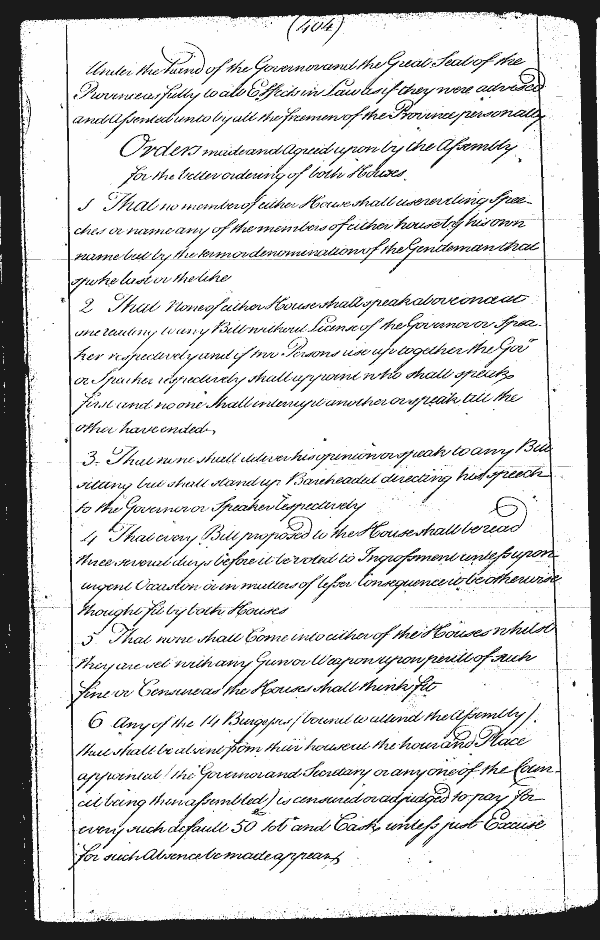 (404)
Under the hand of the Governor and the Great Seal of the
Province as fully to all Effects in Law as if they were advised
and assented unto by all the freemen of the Province personally
Orders made and Agreed upon by the Assembly
for the better ordering of both Houses
1 That no member of either House shall use reviling Spee-
ches or name any of the members of either house by his own
name but by the term or denomination of the Gentleman that
spoke last or the like
2 That None of either House shall speak above once at
one reading to any Bill without License of the Governor or Spea-
ker respectively and if two Persons rise up together the Gov.r
or Speaker respectively shall appoint who shall speak
first and no one shall interrupt another or speak till the
other have ended
3. That none shall deliver his opinion or speak to any Bill
sitting but shall stand up Bareheaded directing his speech
to the Governor or Speaker respectively
4 That every Bill proposed to the House shall be read
three several days before it be voted to Ingrossment unless upon
urgent Occasion or in matters of lesser Consequence to be otherwise
thought fit by both Houses
5 That none shall Come into either of the Houses whilst
they are set with any Gun or Weapon upon perill of such
fine or Censure as the Houses shall think fit
6 Any of the 14 Burgesses (bound to attend the Assembly)
that shall be absent from their house at the hour and Place
appointed (the Governor and Secretary or any one of the Coun-
cil being then assembled) is censured or adjudged to pay for
every such default 50 lbt and Cask unless just Excuse
for such Absence be made appear